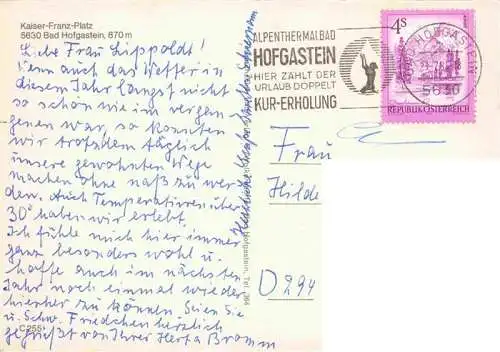 Kaiser-Franz-Platz
5630 Bad Hofgastein, 870 m
Liebe Frau Lippoldt!
Wenn auch das Wetter in
diesem Jahr längst nicht
so schön wie im vergan
genen war, so konnten
wir trotzdem täglich
unsere gewohnten Wege
machen ohne naß zu wer
den. Auch Temperaturen über
30° haben wir erlebt.
Ich fühle mich hier immer
ganz besonders wohl u.
hoffe auch im nächsten
Jahr noch einmal wieder
hierher zu können. Seien Sie
u. Schw. Friedchen herzlich
gegrüßt von Ihrer Herta Bromm
C255
Herzliche Grüße
Hofgastein, Tel.
ALPENTHERMALBAD
HOFGASTEIN
HIER ZÄHLT DER
URLAUB DOPPELT
KUR-ERHOLUNG
4S
REPUBLIK ÖSTERREICH
HOFGASTEIN
5630
Frau
Hilde
D 294